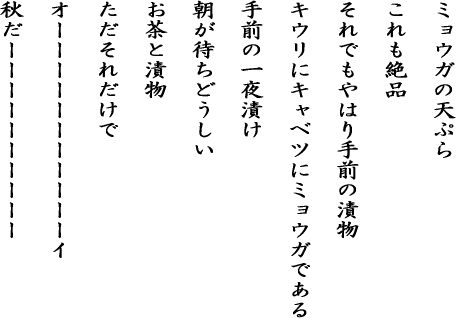 ミョウガの天ぷら
これも絶品
それでもやはり手前の漬物
キウリにキャベツにミョウガである
手前の一夜漬け
朝が待ちどうしい
お茶と漬物
ただそれだけで
オーーーーーーーーーーイ
秋だーーーーーーーーーー